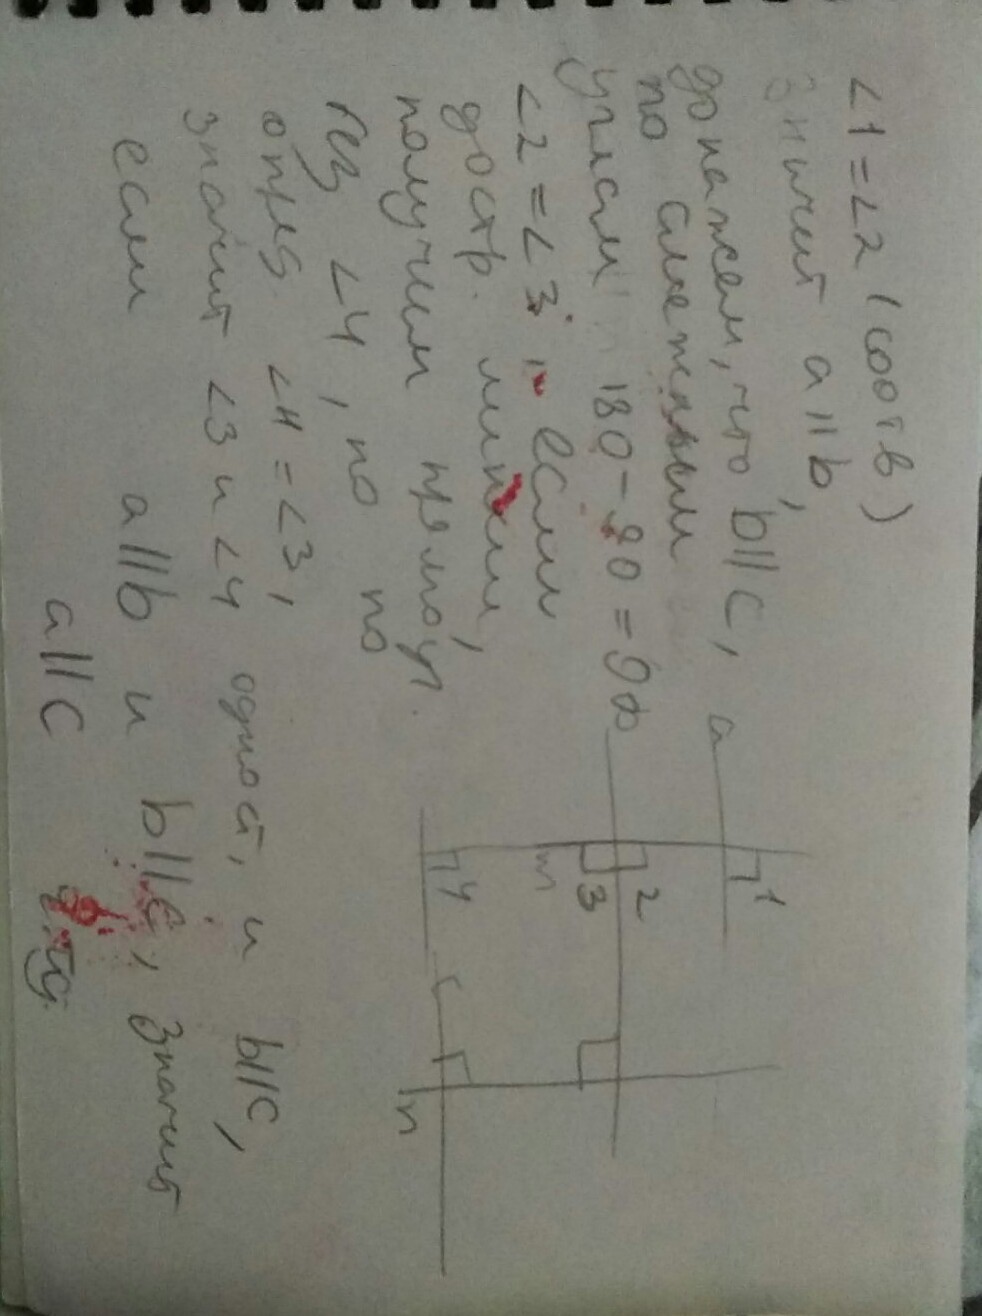 ∠1=∠2 (соотв)
значит a||b,
докажем, что b||c,
по смежным
углам 180-90=90
∠2=∠3, если
достр. линии,
получим прямоуг.
∠4, но по
опрв. ∠4=∠3,
значит ∠3 и ∠4 одност, и b||c,
если a||b и b||c, значит
a||c
a
1
2
3
m
4
c
n